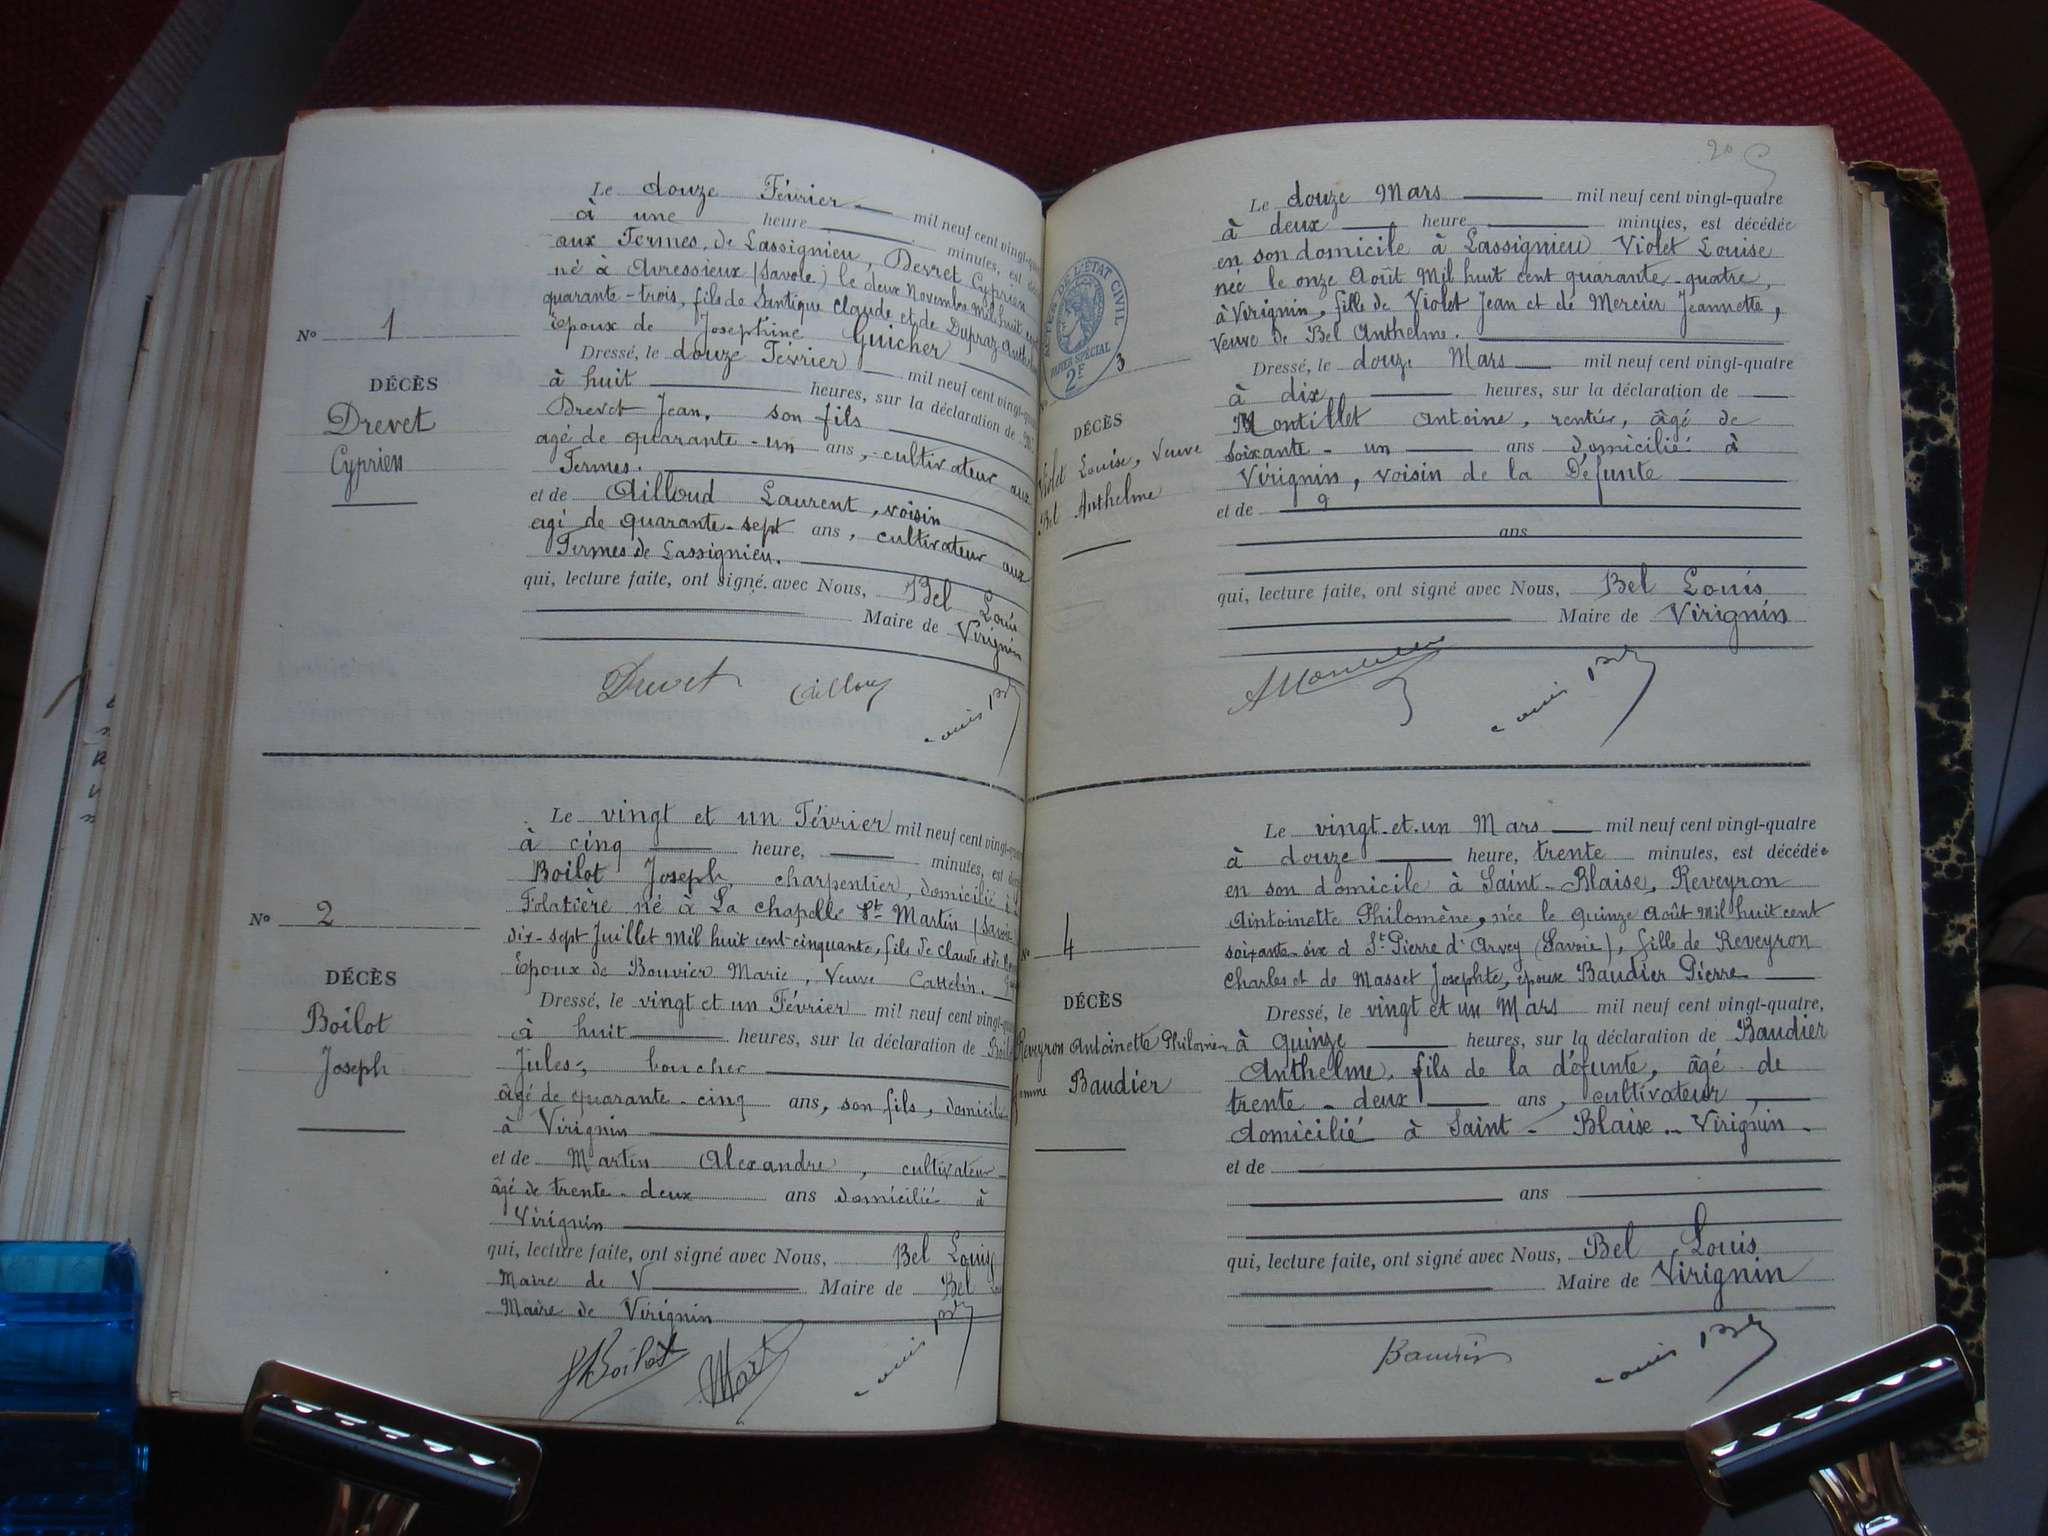 Le douze Février mil neuf cent vingt-
à une heure minutes, est
aux Termes de Lassignieu, Devret Cyprien
né à Avressieux (Savoie) le deux Novembre mil huit cent
quarante-trois, fils de Claude et de Dupraz
Epoux de Josephine Guicher
N° 1
Dressé, le douze Février mil neuf cent vingt-
DÉCÈS
à huit heures, sur la déclaration de
Drevet
Drevet Jean, son fils
Cyprien
agé de quarante-un ans, cultivateur aux
Termes.
et de Ailloud Laurent, voisin
agé de quarante-sept ans, cultivateur aux
Termes de Lassignieu.
qui, lecture faite, ont signé avec Nous, Bel Louis
Maire de Virignin
Drevet
Louis Bel
Le vingt et un Février mil neuf cent vingt-
à cinq heure, minutes, est
Boilot Joseph, charpentier, domicilié à
Folatière né à La chapelle St Martin (Savoie
N° 2
dix-sept Juillet Mil huit cent cinquante, fils de Claude et de
Epoux de Bouvier Marie, Veuve Cattelin.
DÉCÈS
Dressé, le vingt et un Février mil neuf cent vingt-
Boilot
à huit heures, sur la déclaration de
Joseph
Jules, boucher
âgé de quarante-cinq ans, son fils, domicilié
à Virignin
et de Martin Alexandre, cultivateur
âgé de trente-deux ans domicilié à
Virignin
qui, lecture faite, ont signé avec Nous, Bel Louis
Maire de V Maire de Bel
Maire de Virignin
JBoilot Mart Louis Bel
20
Le douze Mars mil neuf cent vingt-quatre
à deux heure minutes, est décédée
en son domicile à Lassignieu Violet Louise
née le onze Août Mil huit cent quarante-quatre,
à Virignin, fille de Violet Jean et de Mercier Jeannette,
Veuve de Bel Anthelme.
DE L'ÉTAT CIVIL
PAPIER SPÉCIAL
2F
3
Dressé, le douze Mars mil neuf cent vingt-quatre
à dix heures, sur la déclaration de
DÉCÈS
Montillet Antoine, rentier, âgé de
Violet Louise, Veuve
soixante-un ans domicilié à
Bel Anthelme
Virignin, voisin de la Défunte
et de
ans
qui, lecture faite, ont signé avec Nous, Bel Louis
Maire de Virignin
Louis Bel
Le vingt-et-un Mars mil neuf cent vingt-quatre
à douze heure, trente minutes, est décédée
en son domicile à Saint-Blaise, Reveyron
Aintoinette Philomène, née le quinze Août Mil huit cent
N° 4
soixante-six à St Pierre d'Arvey (Savoie), fille de Reveyron
Charles et de Masset Josephte, époux Baudier Pierre
DÉCÈS
Dressé, le vingt et un Mars mil neuf cent vingt-quatre,
Reveyron Antoinette Philomèn
à quinze heures, sur la déclaration de Baudier
femme Baudier
Anthelme, fils de la défunte, âgé de
trente-deux ans, cultivateur,
domicilié à Saint-Blaise-Virignin.
et de
ans
qui, lecture faite, ont signé avec Nous, Bel Louis
Maire de Virignin
Louis Bel